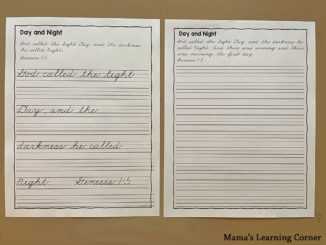 Day and Night
God called the light Day and the darkness
he called Night.
Genesis 1:5
God called the light
Day and the
darkness he called
Night Genesis 1:5
Day and Night
God called the light Day and the darkness he
called Night. And there was evening and there
was morning, the first day.
Genesis 1:5
Mama's Learning Corner